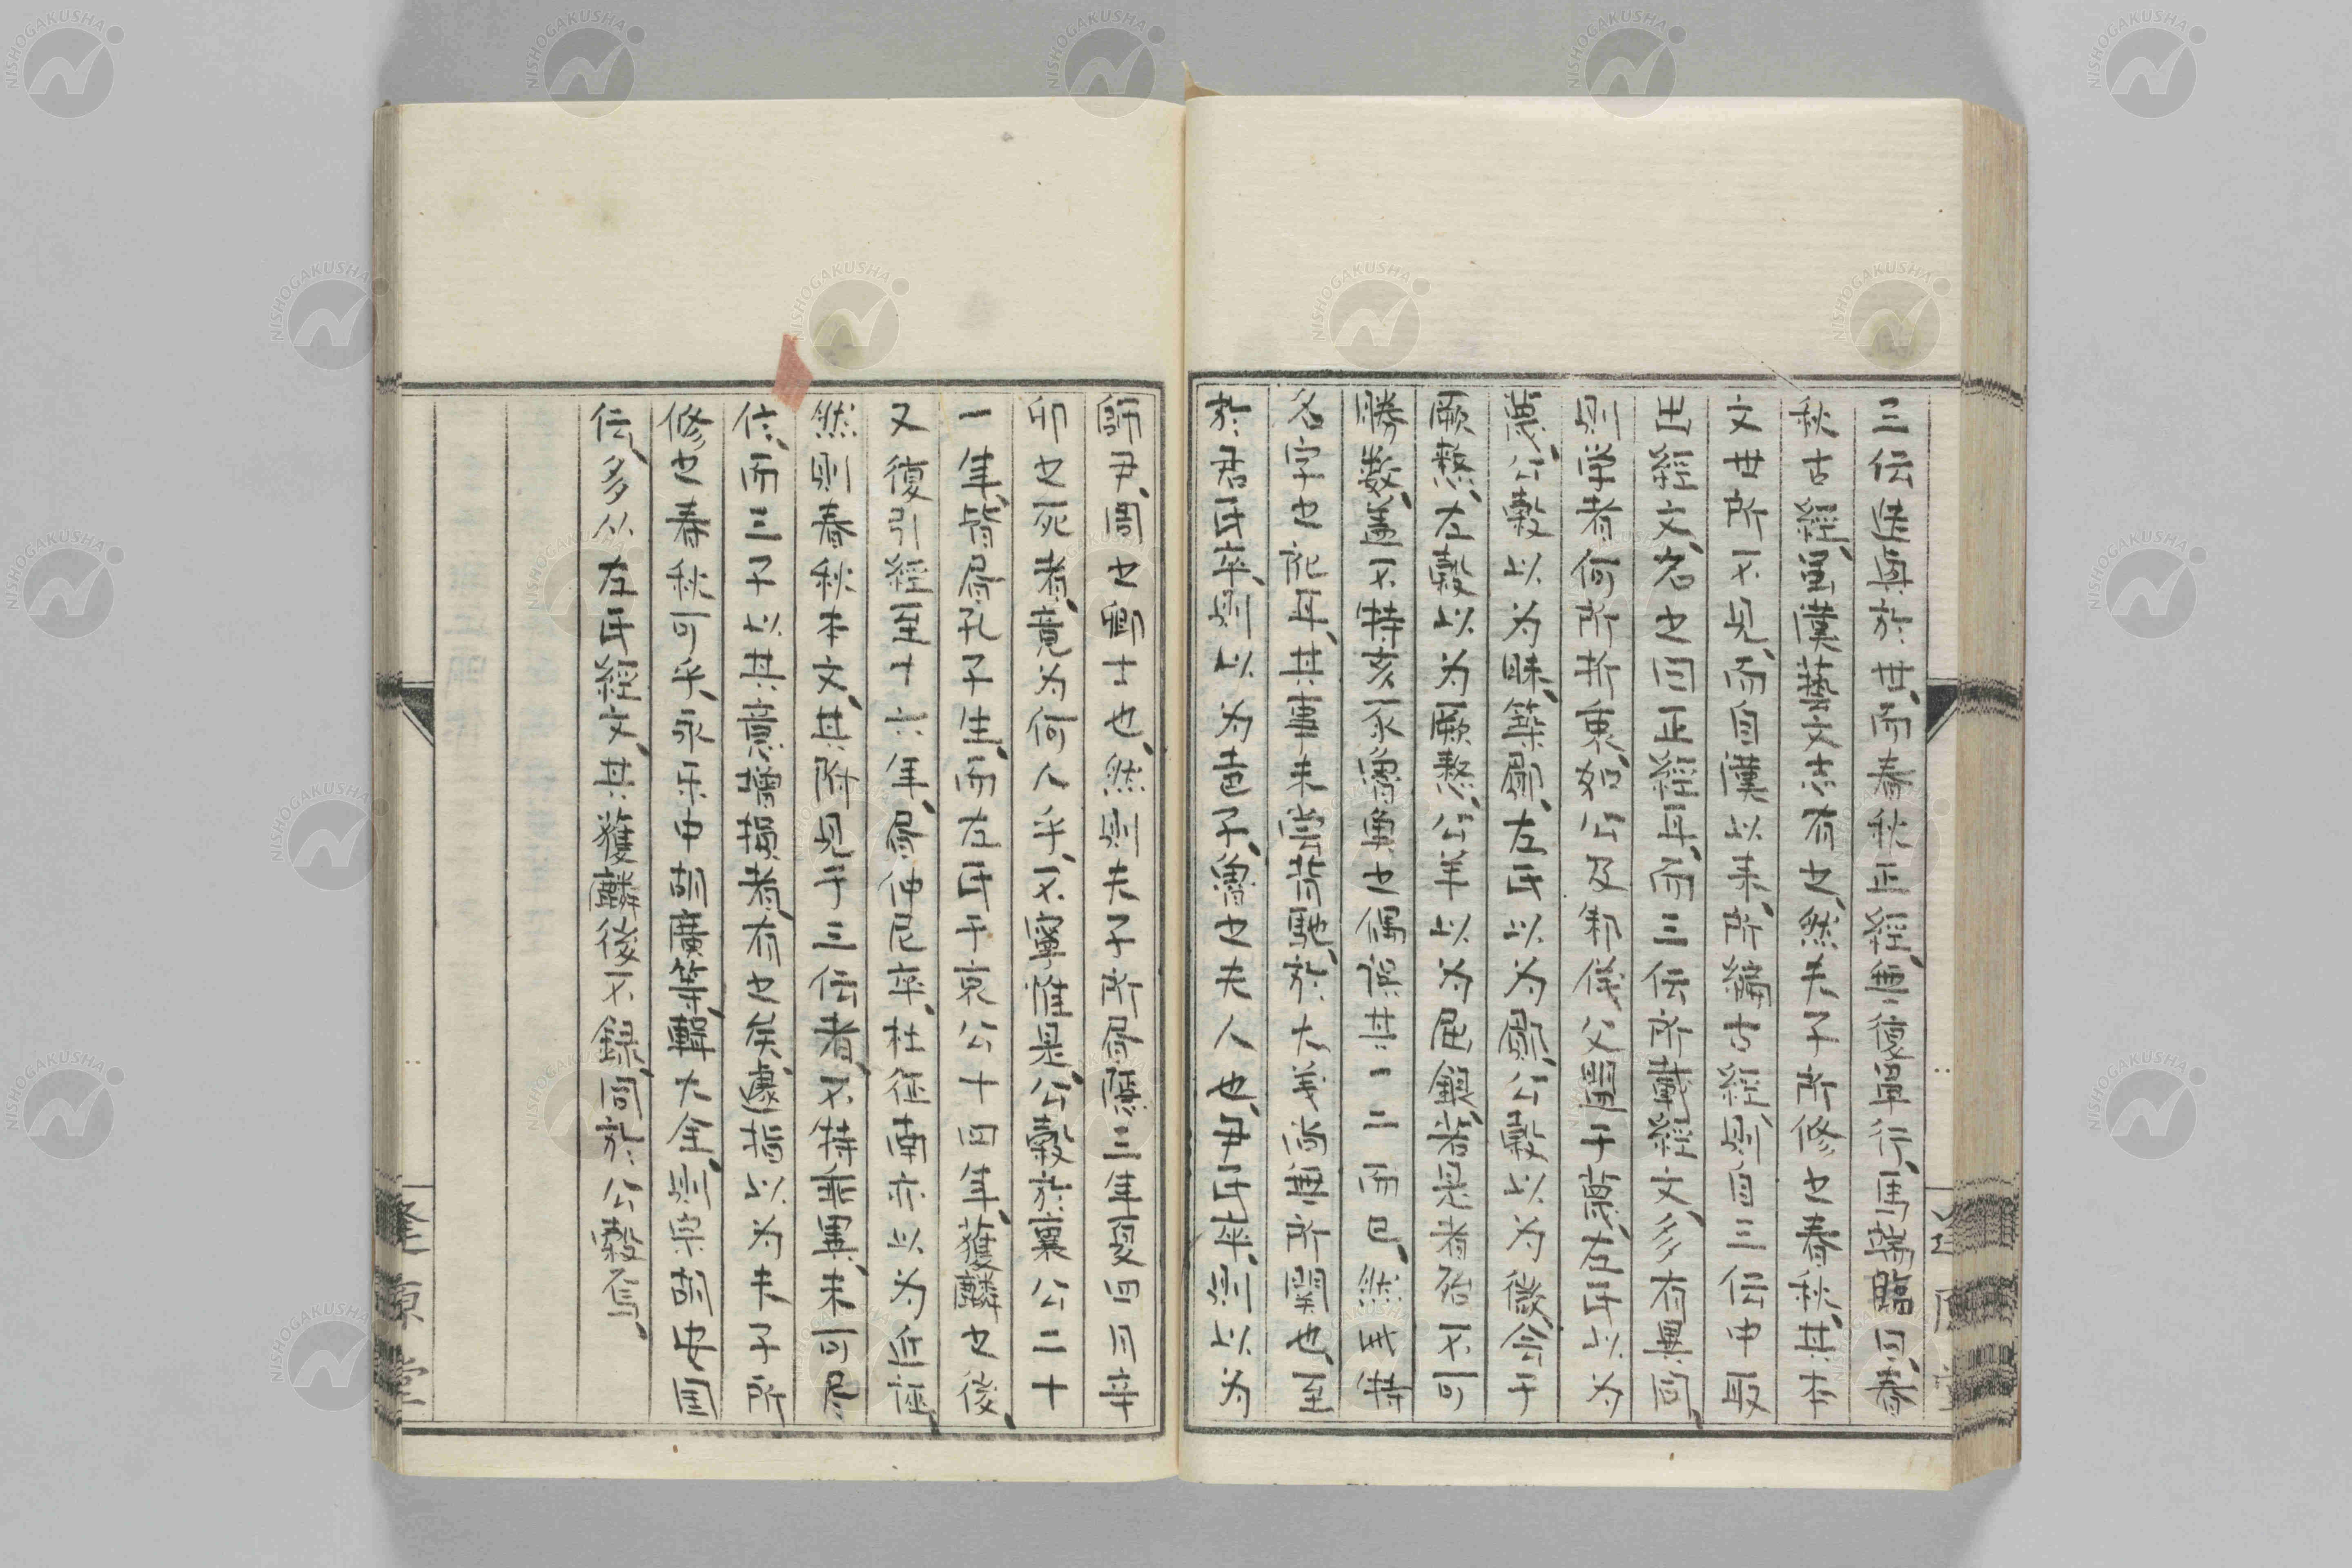 三伝集与於世、而春秋正經、無復単行、馬端臨曰、春
秋古經、虽漢藝文志有之、然夫子所修之春秋、其本
文世所不見、而自漢以来、所編古經、則自三伝中取
出經文、名之曰正經耳、而三伝所載經文、多有異同、
則学者何所折衷、如公及邾儀父盟于蔑、左氏以为
蔑、公穀以为昧、築郿、左氏以为郿、公穀以为微、会于
厥憖、左穀以为厥憖、公羊以为屈銀、若是者殆不可
勝数、盖不特亥豕魯魚之偶误其一二而已、然此特
名字之訛耳、其事未嘗背馳於大义、尚無所関也、至
於君氏卒、則以为声子、魯之夫人也、尹氏卒、則以为
師尹、周之卿士也、然則夫子所局隱三年夏四月辛
卯之死者、竟为何人乎、不寧惟是、公穀於襄公二十
一年、皆局孔子生、而左氏于哀公十四年、獲麟之後
又復引經至十六年、局仲尼卒、杜征南亦以为近誣、
然則春秋本文、其附見于三伝者、不特乖異、未可尽
信、而三子以其意增損者、有之矣、遽指以为夫子所
修之春秋可乎、永乐中胡廣等、輯大全、則宗胡安国
伝、多从左氏經文、其獲麟後不錄、同於公穀焉、
NISHOGAKUSHA